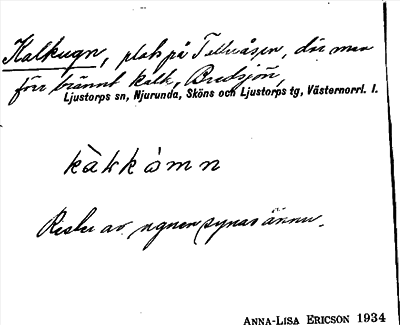 Kalkugn, plats på Tellvåsen, där man
förr brännt kalk, Bredsjön,
Ljustorps sn, Njurunda, Sköns och Ljustorps tg, Västernorrl. l.
kàkkòmn
Rester av ugnen synas ännu.
ANNA-LISA ERICSON 1934